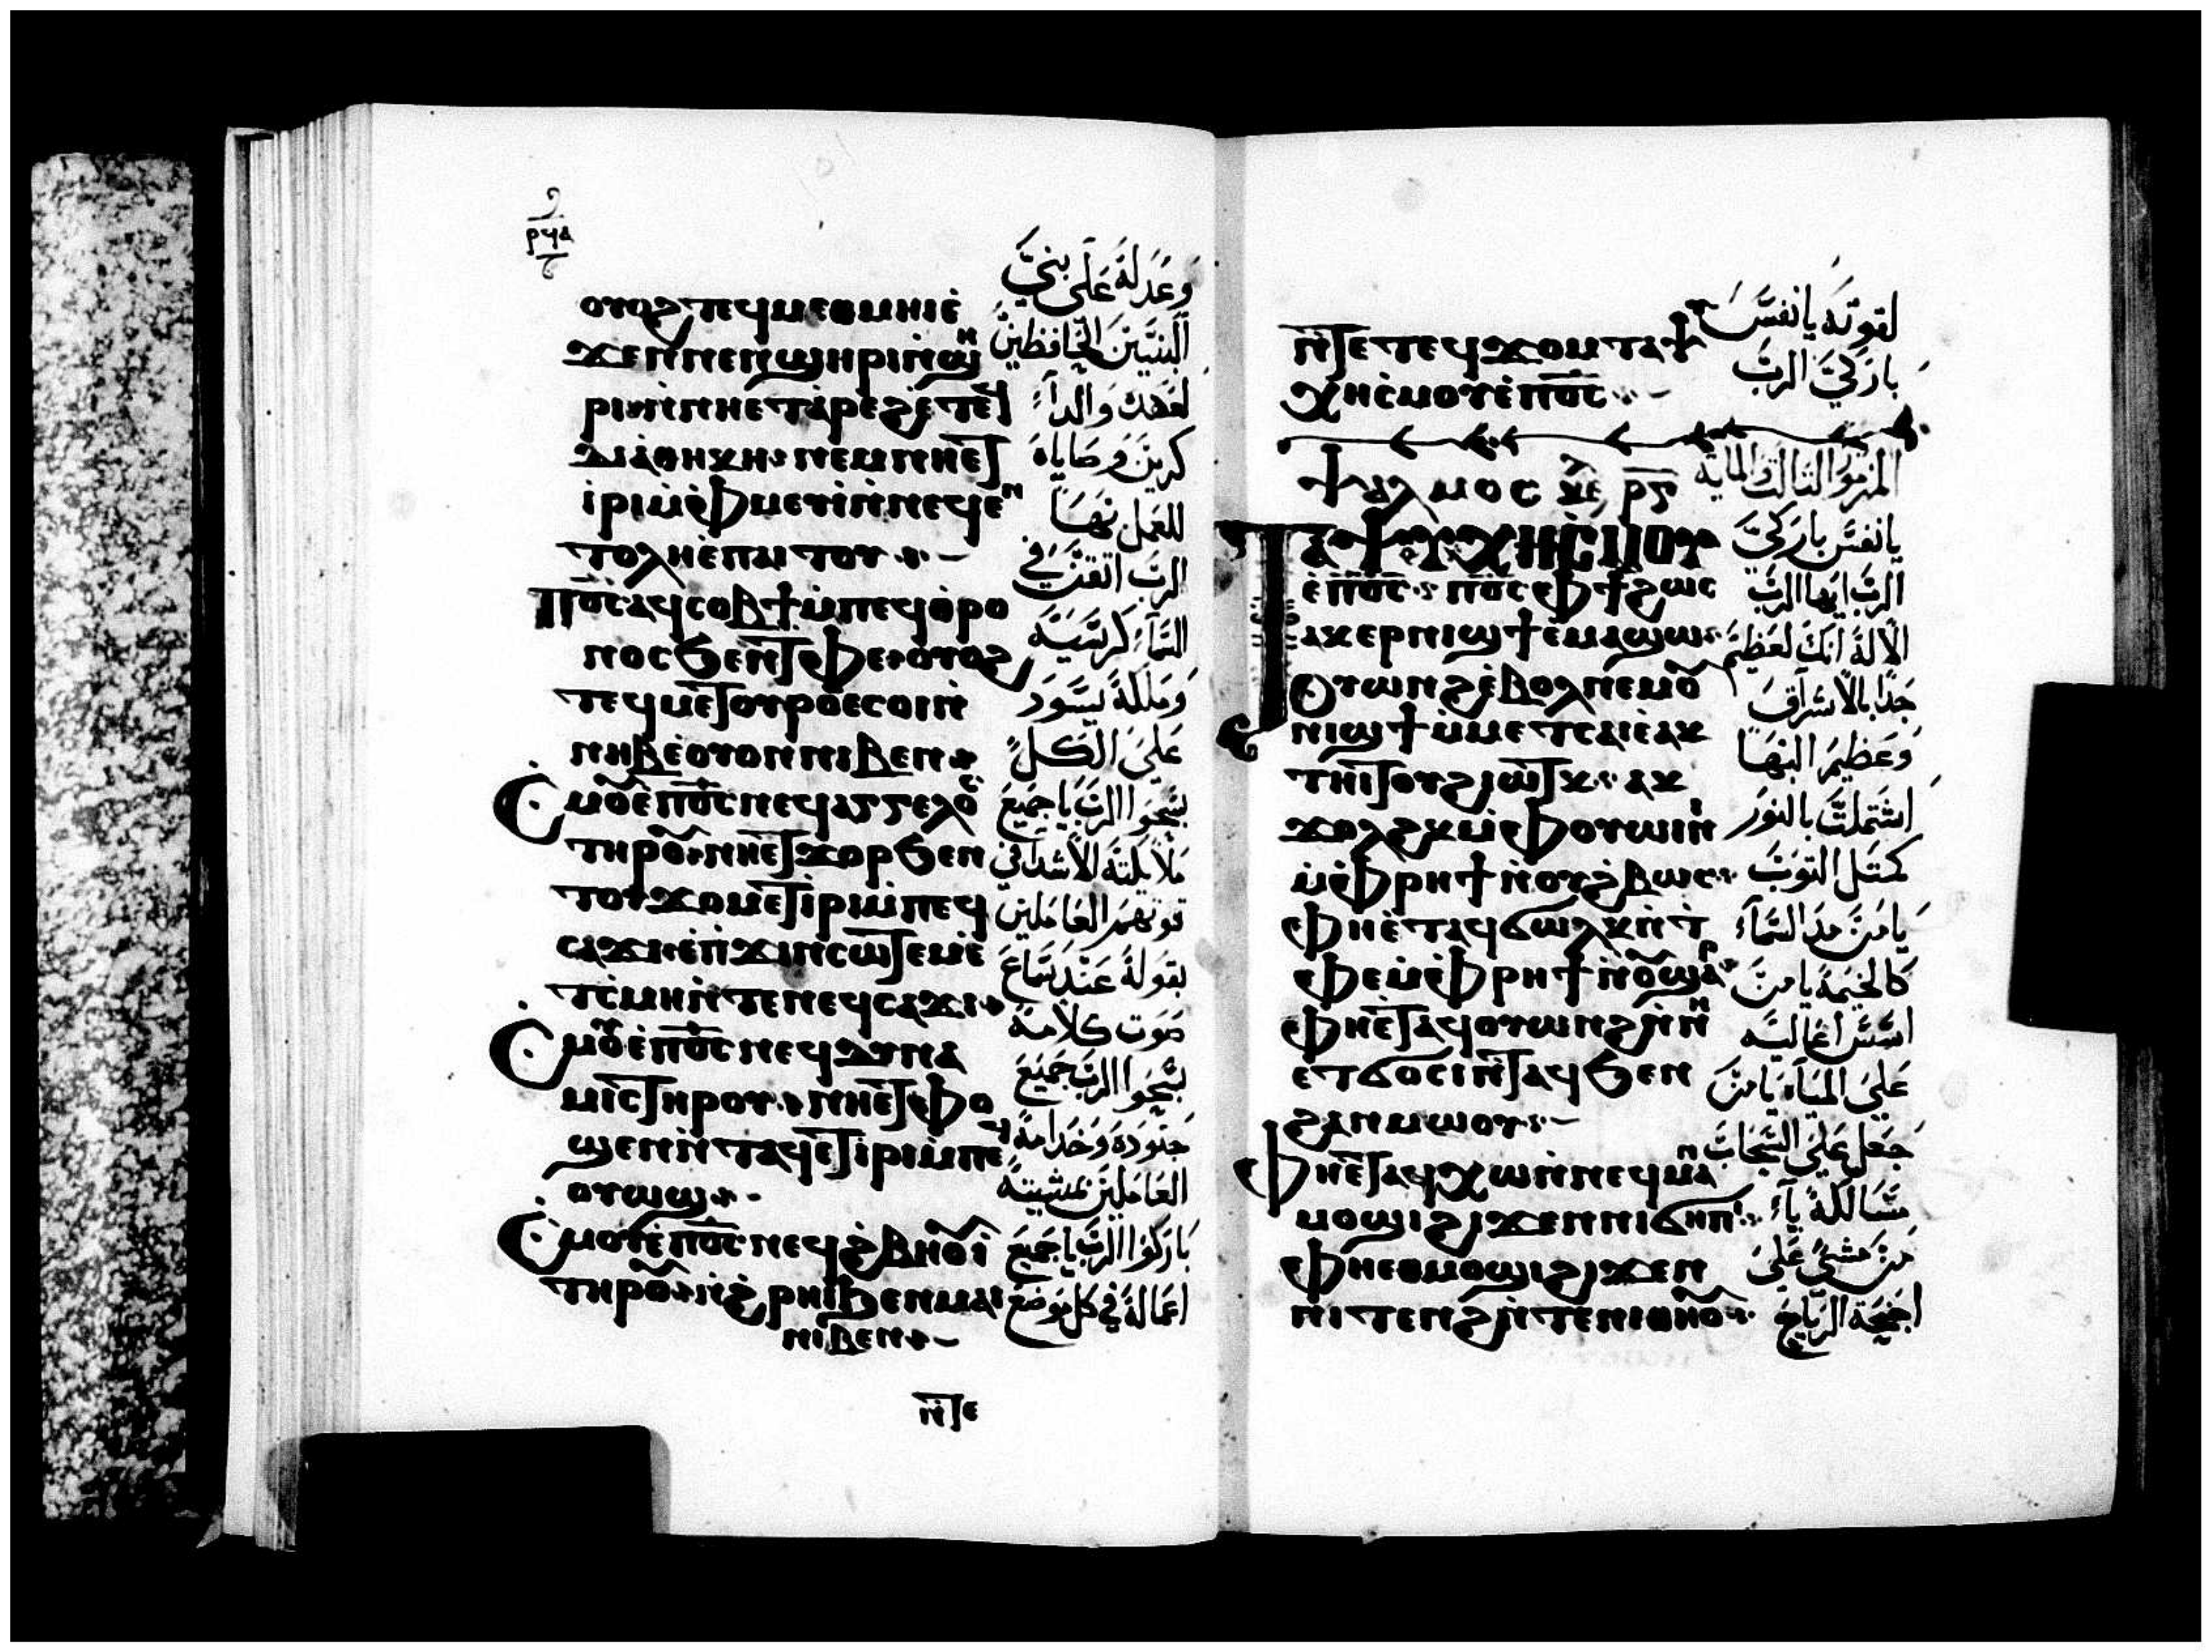 ⲣϥⲁ
ⲟⲩⲟϩ ⲧⲉϥⲙⲉⲑⲙⲏⲓ ⲉ̇
ϫⲉⲛ ⲛⲉⲛϣⲏⲣⲓ ⲛ̇ϣⲏ
ⲣⲓ ⲛ̇ⲛⲏⲉⲧⲁ̇ⲣⲉϩ ⲉ̇ⲧⲉϥ
ⲇⲓⲁⲑⲏⲕⲏ ⲛⲉⲙ ⲛⲏⲉⲧ
ⲓ̇ⲣⲓ ⲙ̇ⲫⲙⲉⲩⲓ̇ ⲛ̇ⲛⲉϥⲉⲛ
ⲧⲟⲗⲏ ⲉ̇ⲡⲁⲓⲧⲟⲩ
Ⲡⲟ̅ⲥ̅ ⲁϥⲥⲟⲃϯ ⲙ̇ⲡⲉϥⲑ̇ⲣⲟ
ⲛⲟⲥ ϧⲉⲛ ⲧⲫⲉ ⲟⲩⲟϩ
ⲧⲉϥⲙⲉⲧⲟⲩⲣⲟ ⲉⲥⲟⲓ ⲛ̇
ⲛⲏⲃ ⲉ̇ⲟⲩⲟⲛ ⲛⲓⲃⲉⲛ
Ⲥⲙⲟⲩ ⲉ̇ⲡⲟ̅ⲥ̅ ⲛⲉϥⲁⲅⲅⲉⲗⲟⲥ
ⲧⲏⲣⲟⲩ ⲛⲏⲉⲧϫⲟⲣ ϧⲉⲛ
ⲧⲟⲩϫⲟⲙ ⲉⲧⲓ̇ⲣⲓ ⲙ̇ⲡⲉϥ
ⲥⲁϫⲓ ⲉ̇ⲡ̇ϫⲓⲛⲥⲱⲧⲉⲙ ⲉ̇
ⲧ̇ⲥⲙⲏ ⲛ̇ⲧⲉ ⲛⲉϥⲥⲁϫⲓ
Ⲥⲙⲟⲩ ⲉ̇ⲡⲟ̅ⲥ̅ ⲛⲉϥⲇⲩⲛⲁ
ⲙⲓⲥ ⲧⲏⲣⲟⲩ ⲛⲏⲉⲧⲫⲟ
ϣⲉⲛ ⲛ̇ⲧⲁϥ ⲉⲧⲓ̇ⲣⲓ ⲙ̇ⲡⲉϥ
ⲟⲩⲱϣ
Ⲥⲙⲟⲩ ⲉ̇ⲡⲟ̅ⲥ̅ ⲛⲉϥϩ̇ⲃⲏⲟⲩⲓ̇
ⲧⲏⲣⲟⲩ ⲛ̇ϩ̇ⲣⲏⲓ ϧⲉⲛ ⲙⲁⲓ
ⲛⲓⲃⲉⲛ
ⲛ̇ⲧⲉ
وعدله على بني
البنين الحافظين
لعهده والدا
كرين وصاياه
للعمل بها
الرب اتقن في
السماء كرسيه
ومملكته يسود
على الكل
سبحوا الرب يا جميع
ملايكته الاشدا في
قوتهم العاملين
بقوله عند سماع
صوت كلامه
سبحوا الرب جميع
جنوده وخدامه
العاملين بمشيته
باركوا الرب يا جميع
اعماله في كل موضع
ⲛ̇ⲧⲉ ⲧⲉϥϫⲟⲙ ⲧⲁⲯ
ⲩⲭⲏ ⲥ̇ⲙⲟⲩ ⲉ̇ⲡⲟ̅ⲥ̅
ⲯⲁⲗⲙⲟⲥ ⲣⲅ
Ⲧⲁⲯⲩⲭⲏ ⲥ̇ⲙⲟⲩ
ⲉ̇ⲡⲟ̅ⲥ̅ ⲡⲟ̅ⲥ̅ ⲫϯ ϩⲱⲥ
ⲁⲕⲉⲣⲛⲓϣϯ ⲉ̇ⲙⲁϣⲱ
ⲟⲩⲱⲛϩ ⲉ̇ⲃⲟⲗ ⲛⲉⲙ ⲟⲩ
ⲛⲓϣϯ ⲙ̇ⲙⲉⲧⲥⲁⲓⲉ̇ ⲁⲕ
ⲧⲏⲓⲧⲟⲩ ϩⲓⲱⲧⲕ ⲁⲕ
ϫⲟⲗϩⲕ ⲙ̇ⲫⲟⲩⲱⲓⲛⲓ
ⲙ̇ⲫⲣⲏϯ ⲛ̇ⲟⲩϩ̇ⲃⲱⲥ
ⲫⲏⲉ̇ⲧⲁϥϭⲱⲗⲕ ⲛ̇ⲧ̇
ⲫⲉ ⲙ̇ⲫⲣⲏϯ ⲛ̇ⲟⲩϣⲁⲣ
ⲫⲏⲉ̇ⲧⲁϥⲟⲩⲱⲛϩ ⲛ̇ⲛⲏ
ⲉⲧϭⲟⲥⲓ ⲛ̇ⲧⲁϥ ϧⲉⲛ
ϩⲁⲛⲙⲱⲟⲩ
Ⲫⲏⲉ̇ⲧⲁϥⲭⲱ ⲛ̇ⲛⲉϥⲙⲁⲛ
ⲙⲟϣⲓ ϩⲓϫⲉⲛ ⲛⲓϭⲏⲡⲓ
ⲫⲏⲉⲑⲙⲟϣⲓ ϩⲓϫⲉⲛ
ⲛⲓⲧⲉⲛϩ ⲛ̇ⲧⲉ ⲛⲓⲑⲏⲟⲩ
لقوته يا نفس
باركي الرب
المزمور الثالث والمايه
يا نفس باركي
الرب ايها الرب
الاله انك لعظيم
جدا بالاشراق
وعظيم البها
اشتملت بالنور
كمثل الثوب
يا من مد السماء
كالخيمة يا من
اسس اعاليه
على المياه يا من
جعل على السحاب
مسالكه يا
من مشي على
اجنحة الرياح